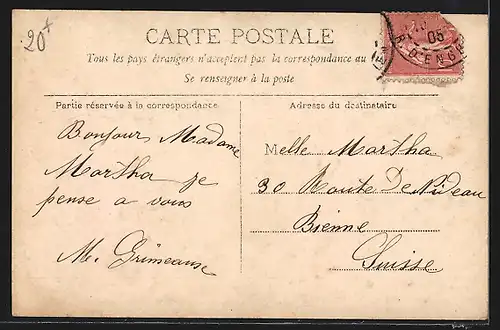 20+
CARTE POSTALE
Tous les pays étrangers n'acceptent pas la correspondance au
Se renseigner à la poste
05
Partie réservée à la correspondance
Bonjour Madame
Martha je
pense a vous
M.
Adresse du destinataire
Melle Martha
30 Route De Nideau
Bienne
Suisse